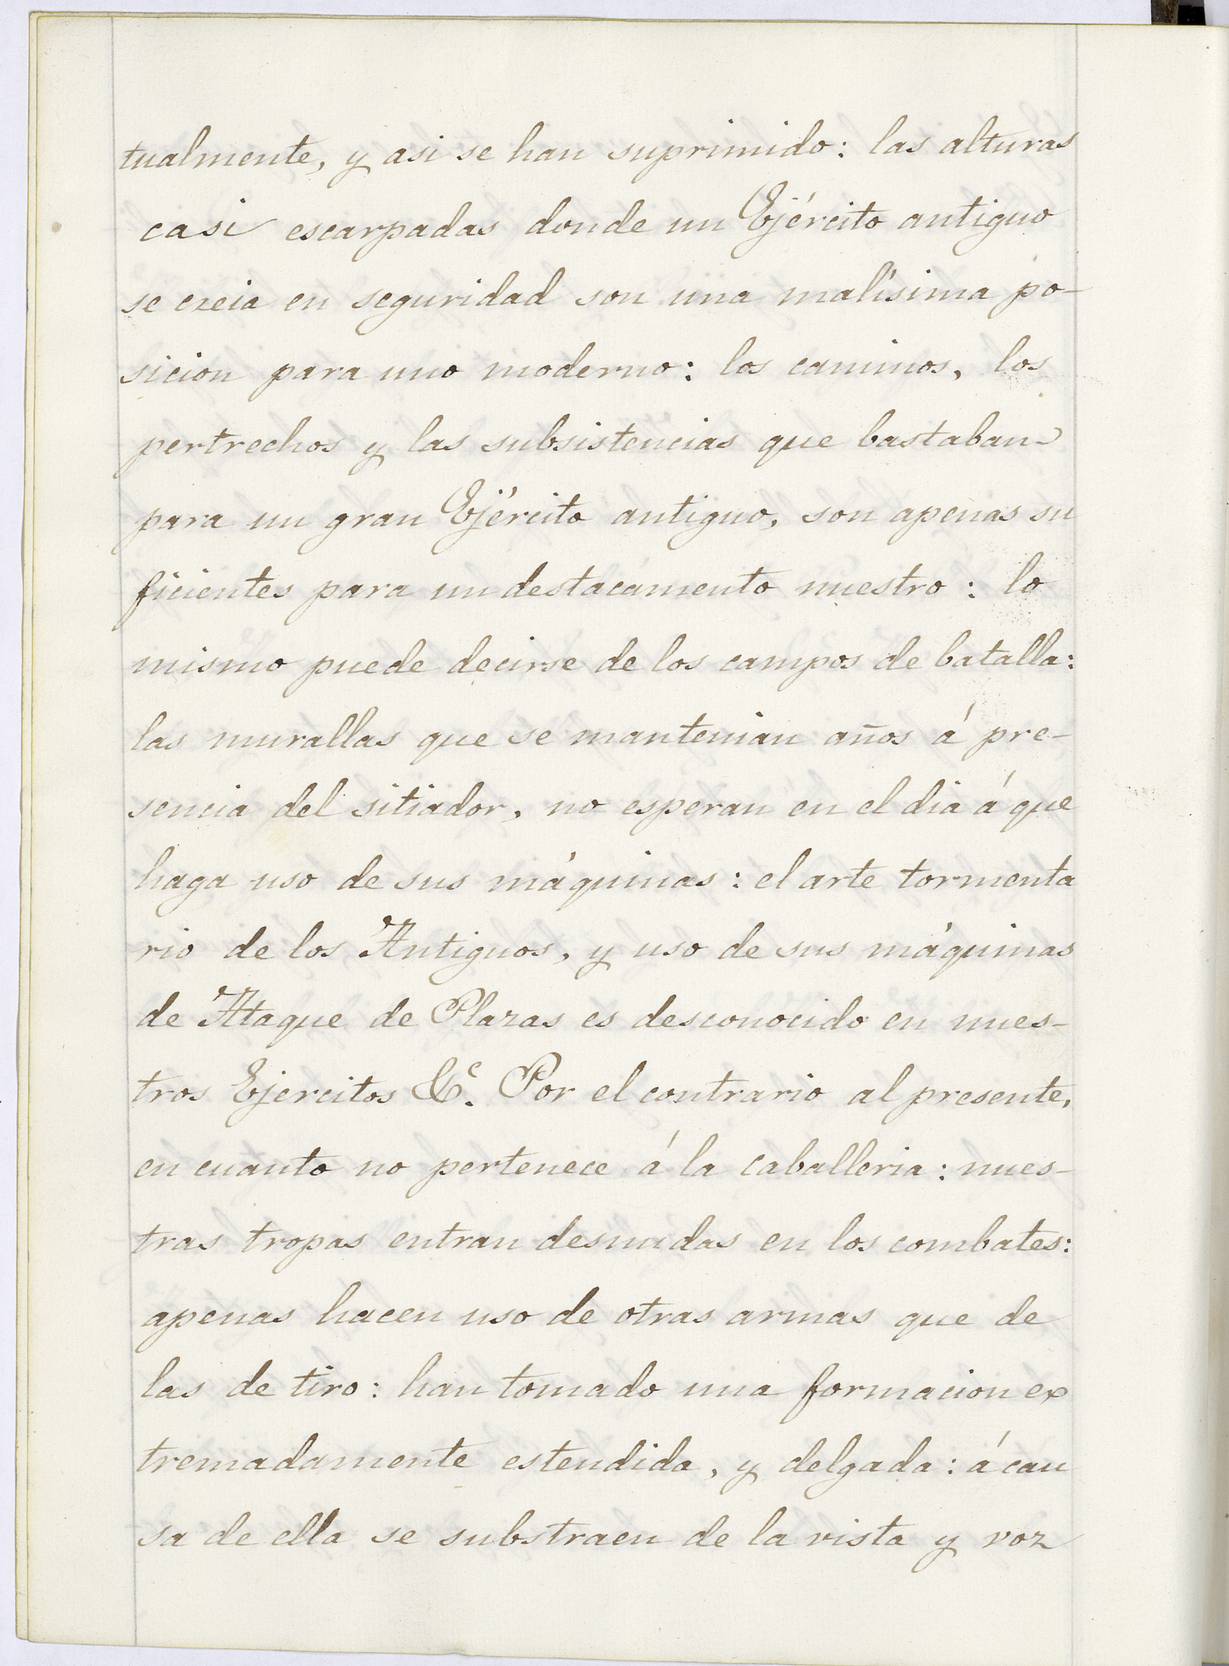 tualmente, y asi se han suprimido: las alturas
casi escarpadas donde un Ejército antiguo
se creia en seguridad son una malísima po-
sicion para uno moderno: los caminos, los
pertrechos y las subsistencias que bastaban
para un gran Ejército antiguo, son apenas su
ficientes para un destacamento nuestro: lo
mismo puede decirse de los campos de batalla:
las murallas que se mantenian años á pre-
sencia del sitiador, no esperan en el dia á que
haga uso de sus máquinas: el arte tormenta
rio de los Antiguos, y uso de sus máquinas
de Ataque de Plazas es desconocido en nues-
tros Ejercitos &c. Por el contrario al presente,
en cuanto no pertenece á la caballeria: nues-
tras tropas entran desnudas en los combates:
apenas hacen uso de otras armas que de
las de tiro: han tomado una formacion ex
tremadamente estendida, y delgada: á cau
sa de ella se substraen de la vista y voz